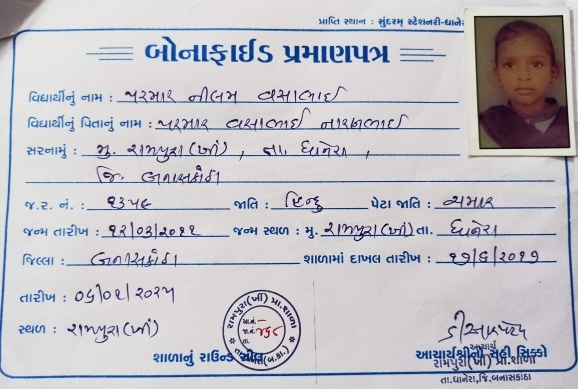 પ્રાપ્તિ સ્થાન : સુંદરમ્ સ્ટેશનરી-ધાનેરા
બોનાફાઈડ પ્રમાણપત્ર
વિદ્યાર્થીનું નામ : પરમાર નીલમ વસાભાઈ
વિદ્યાર્થીનું પિતાનું નામ : પરમાર વસાભાઈ નારણભાઈ
સરનામું : મુ. રામપુરા(ખીં), તા. ધાનેરા,
જિ. બનાસકાંઠા
જ.ર. નં. : ૧૩૫૯ જાતિ : હિન્દુ પેટા જાતિ : ચમાર
જન્મ તારીખ : ૧૨/૦૩/૨૦૧૧ જન્મ સ્થળ : મુ. રામપુરા(ખીં) તા. ધાનેરા
જિલ્લા : બનાસકાંઠા શાળામાં દાખલ તારીખ : ૧૭/૬/૨૦૧૭
તારીખ : ૦૬/૦૧/૨૦૨૫
સ્થળ : રામપુરા(ખીં)
રામપુરા(ખીં) પ્રા.શાળા
શાળાનું રાઉન્ડ સીલ
આચાર્યશ્રીની સહી સિક્કો
આચાર્ય
રામપુરા(ખીં) પ્રા.શાળા
તા.ધાનેરા,જિ.બનાસકાંઠા